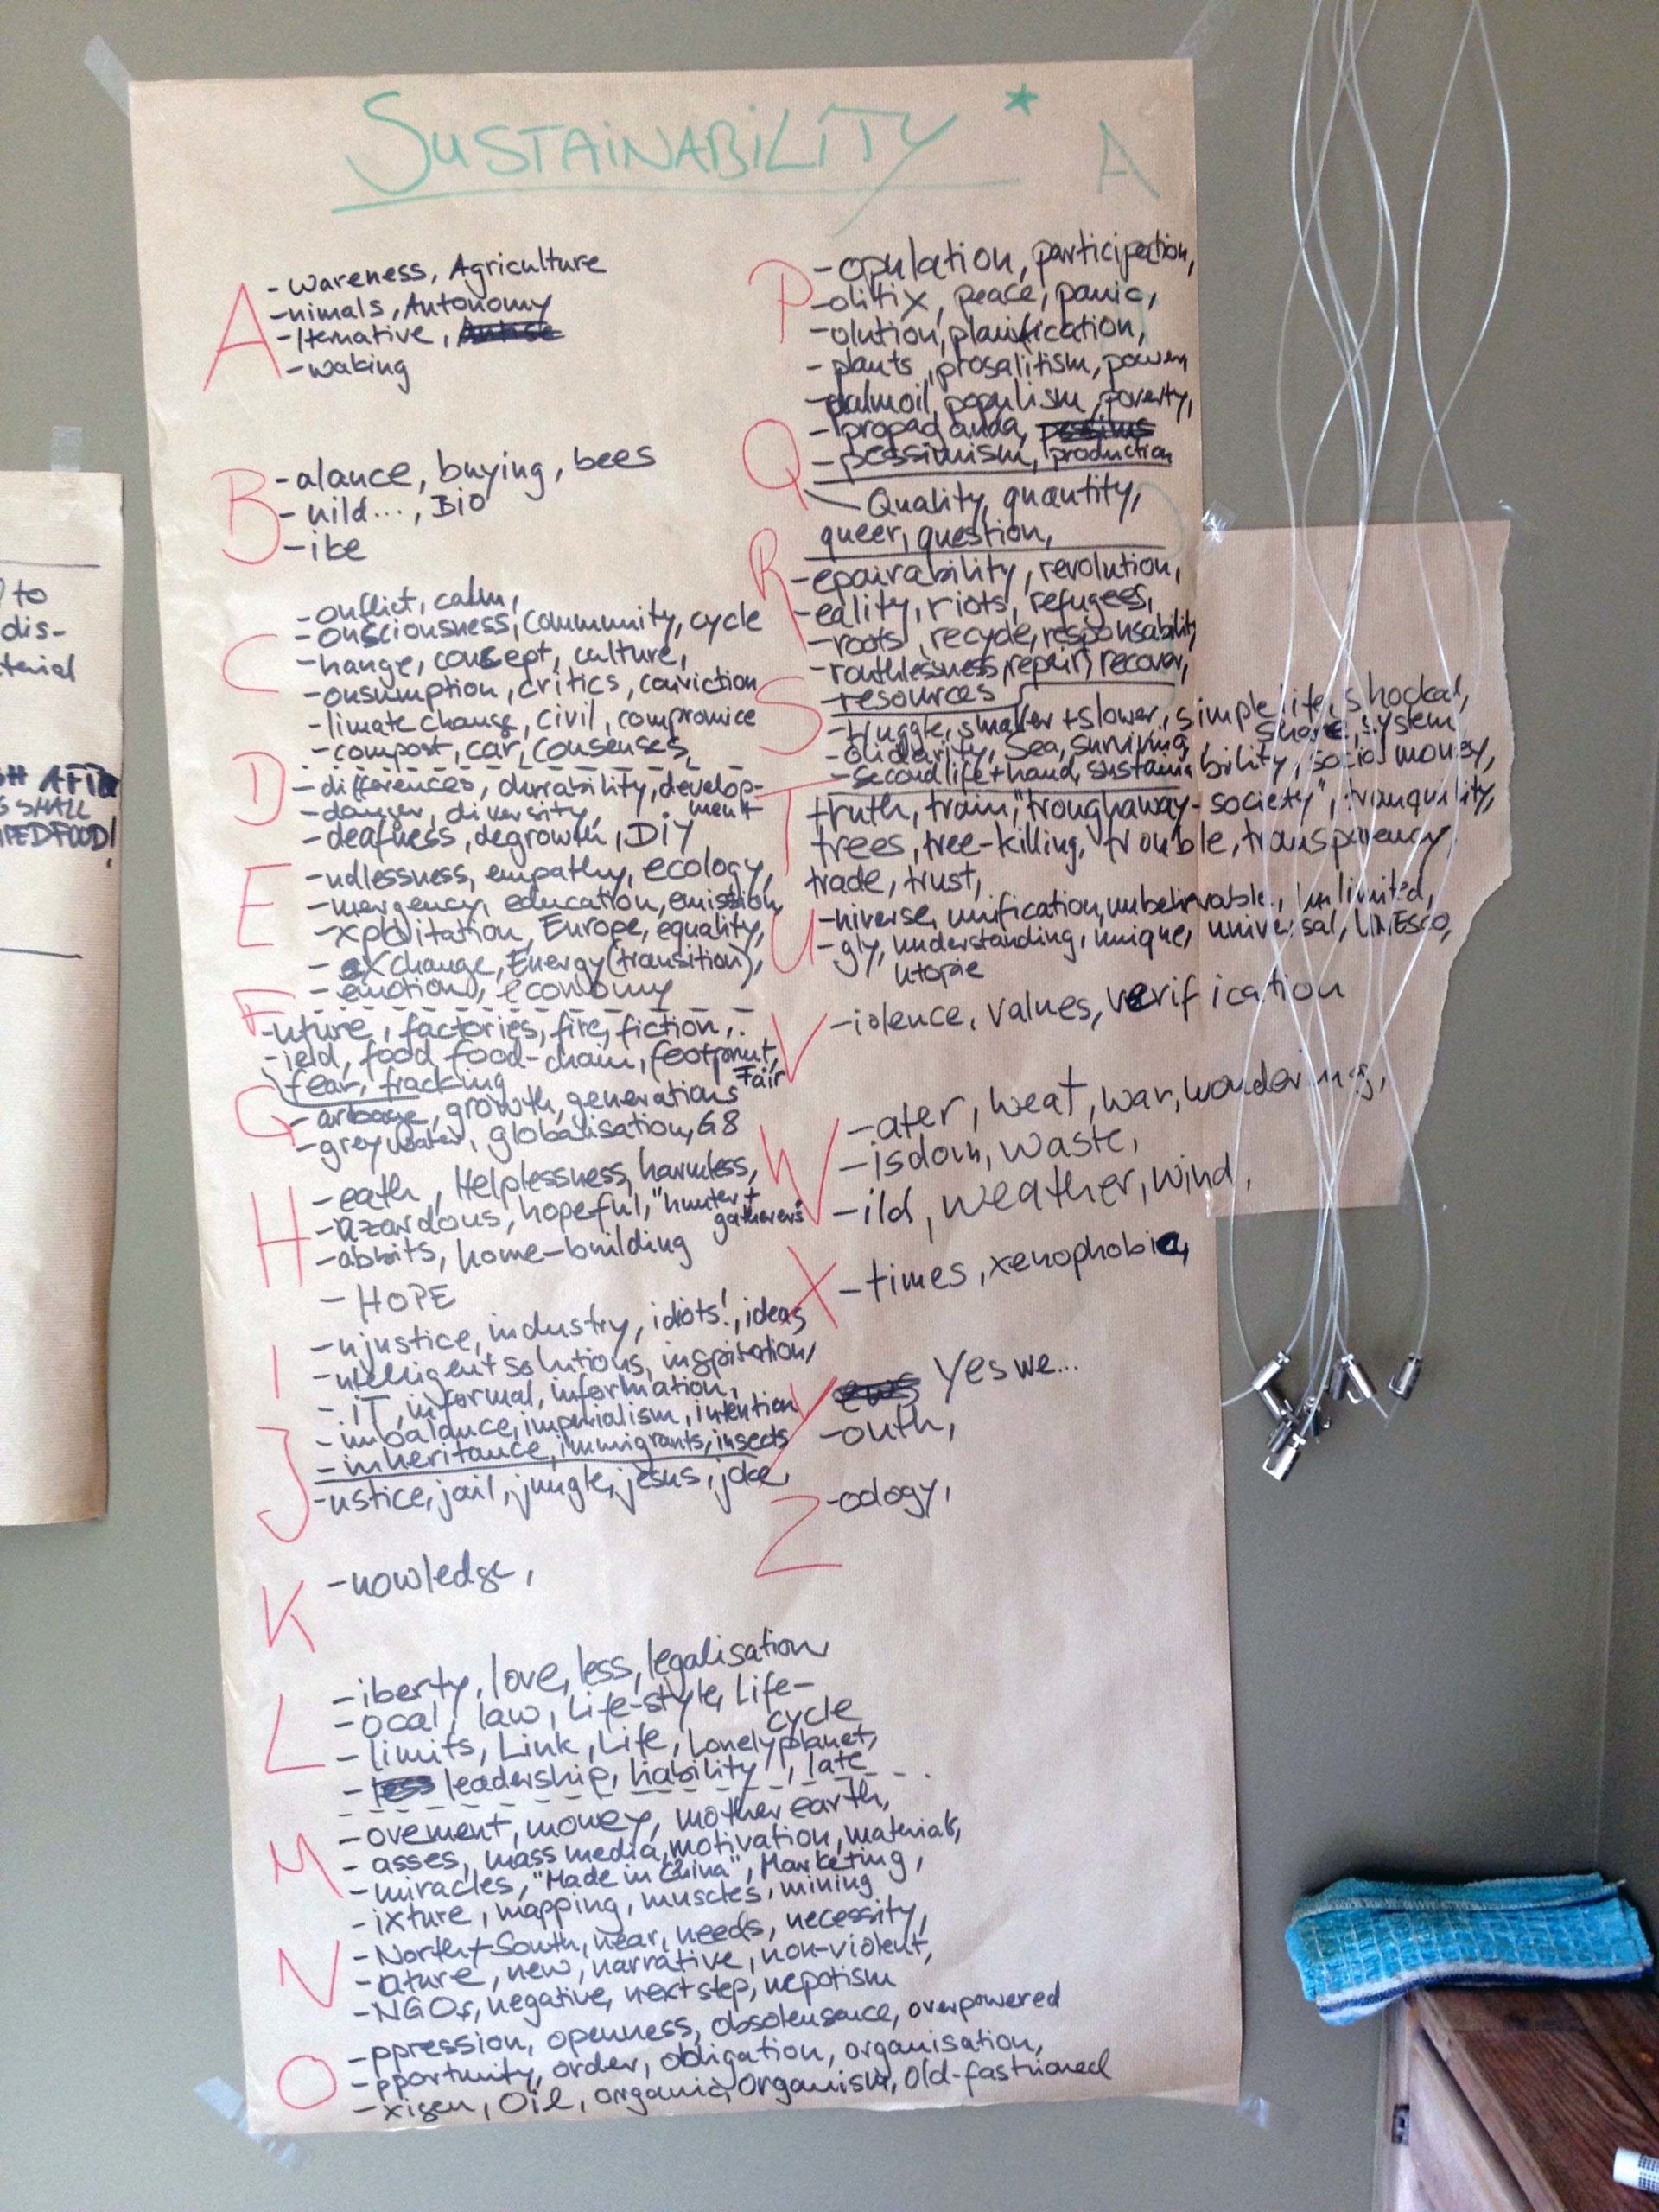 SUSTAINABILITY *
A
A
-wareness, Agriculture
-nimals, Autonomy
-lternative,
-waking
B
-alance, buying, bees
-uild..., BiO
-ike
C
-onflict, calm,
-onsciousness, community, cycle
-hange, concept, culture,
-onsumption, critics, conviction
-limate change, civil, compromice
-compost, car, consenses,
D
-differences, durrability, develop-
ment
-danger, diversity,
-deafness, degrowth, DiY
E
-ndlessness, empathy, ecology,
-mergency, education, emission
-xploitation, Europe, equality,
-eXchange, Energy (transition),
-emotion, economy
F
-uture, factories, fire, fiction,
-ield, food food-chain, footprint,
fear, fracking Fair
G
-arbage, growth, generations
-greywater, globalisation, G8
H
-eath, Helplessness, harmless,
-azardous, hopeful, "hunter +
gatherers"
-abbits, home-building
-HOPE
I
-njustice, industry, idiots!, ideas
-ntelligent solutions, inspiration,
-iT, informal, information,
-imbalance, imperialism, intention
-inheritance, immigrants, insects
J
-ustice, jail, jungle, jesus, joke,
K
-nowledge,
L
-iberty, love, less, legalisation
-ocal, law, Life-style, Life-
cycle
-limits, Link, Life, Lonely planet,
-leadership, liability, late
M
-ovement, money, mother earth,
-asses, mass media, motivation, materials,
-miracles, "Made in China", Marketing,
-ixture, mapping, muscles, mining
N
-North+South, near, needs, necessity,
-ature, new, narrative, non-violent,
-NGOs, negative, next step, nepotism
O
-ppression, openness, obsolensence, overpowered
-pportunity, order, obligation, organisation,
-xigen, Oil, organic, Organism, Old-fastioned
P
-opulation, participation,
-olitix, peace, panic,
-olution, planification,
-plants, prosalitism, power
-palmoil, populism, poverty,
-propaganda,
-pessimism, production
Q
Quality, quantity,
queer, question,
R
-epairability, revolution,
-eality, riots, refugees,
-roots, recycle, responsability
-routhlessness, repair, recover,
-resources
S
-truggle, smaller + slower, simple life, shockal,
-olidarity, Sea, surviving, share, system
-second life + hand, sustainability, social money,
T
truth, train, "troughaway-society", tranquility,
trees, tree-killing, trouble, transparency
trade, trust,
U
-niverse, unification, unbelievable, unlimited,
-gly, understanding, unique, universal, UNESCO,
utopie
V
-iolence, values, verification
W
-ater, weat, war, wondering,
-isdom, waste,
-ild, weather, wind,
X
-times, xenophobia,
Y
Yes we...
-outh,
Z
-oology,
to
dis-
terial
SHALL
PEDFOOD!